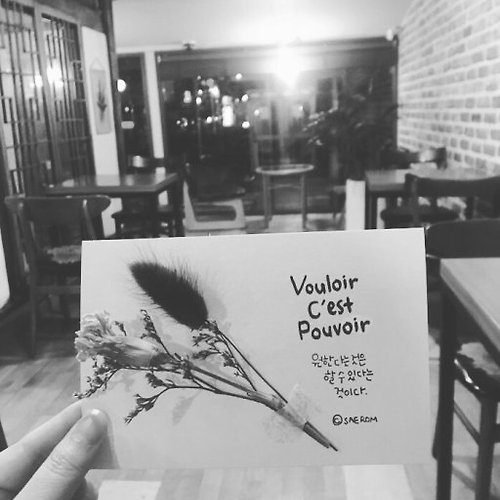 Vouloir
C'est
Pouvoir
원한다는것은
할 수 있다는
것이다.
©SAEROM